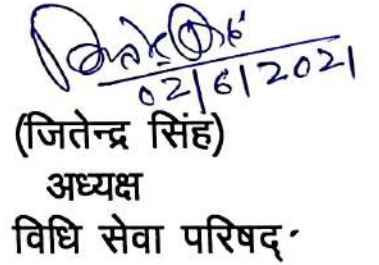 02/6/2021
(जितेन्द्र सिंह)
अध्यक्ष
विधि सेवा परिषद्